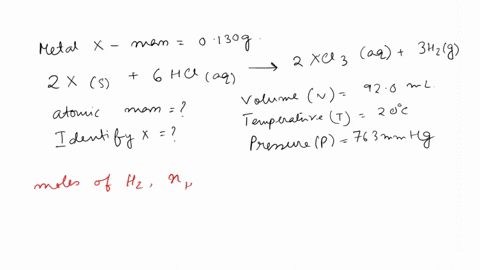 Metal X - mass = 0.130g.
2 X (s) + 6 HCl (aq) ⟶ 2 XCl3 (aq) + 3H2(g)
atomic mass = ?
Identify X = ?
Volume (V) = 92.0 mL
Temperature (T) = 20°C
Pressure (P) = 763 mm Hg
moles of H2, nH